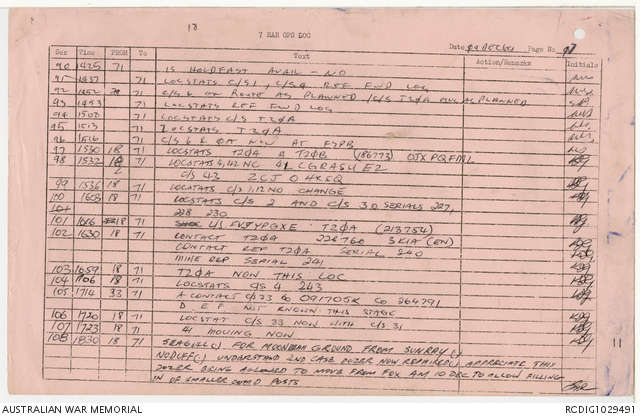 18
7 RAR OPS LOG
Date Page No
Ser Time FROM To Text Action/Remarks Initials
90 1425 71 IS HOLDFAST AVAIL - NO
91 1437 71 LOCSTATS C/S 1, C/S 4 REF FWD LOG
92 1452 71 C/S 6 ROUTE AS PLANNED / C/S T2ØA PLANNED
93 1453 71 LOCSTATS REF FWD LOG
94 1502 71 LOCSTATS C/S T2ØA
95 1513 71 LOCSTATS T2ØA
96 1516 71 C/S 6 NOW AT FSPB
97 1530 18 71 LOCSTATS T2ØA & T2ØB (186773) OJX PQFML
98 1532 18 71 LOCSTATS 1,12 NC 41 CGRASU EZ
2 C/S 42 ZCJ
99 1536 18 71 LOCSTATS C/S 1,12 NO CHANGE
100 1608 18 71 LOCSTATS C/S 2 AND C/S 30 SERIALS 227,
228 230
101 1616 18 71 T2ØA (213754)
102 1630 18 71 CONTACT T2ØA 226760 3 KIA (EN)
CONTACT REP T2ØA SERIAL 240
MINE REP SERIAL 241
103 1659 18 71 T2ØA NOW THIS LOC
104 1706 18 71 LOCSTATS C/S 4 243
105 1714 33 71 A CONTACT C/S 33 091705K 264791
NOT KNOWN THIS STAGE
106 1720 18 71 LOCSTAT C/S 33 NOW WITH C/S 31
107 1723 18 71 41 MOVING NOW
108 1830 18 71 SEAGULL() FOR MOONBEAM GROUND FROM SUNRAY ()
NODUFF() UNDERSTAND 2ND CASE DOZER NOW REPAIRED() APPRECIATE THIS
DOZER BEING ALLOWED TO MOVE FROM FOX AM 10 DEC TO ALLOW FILLING
IN OF SMALLER COMD POSTS
11
AUSTRALIAN WAR MEMORIAL
RCDIG1029491